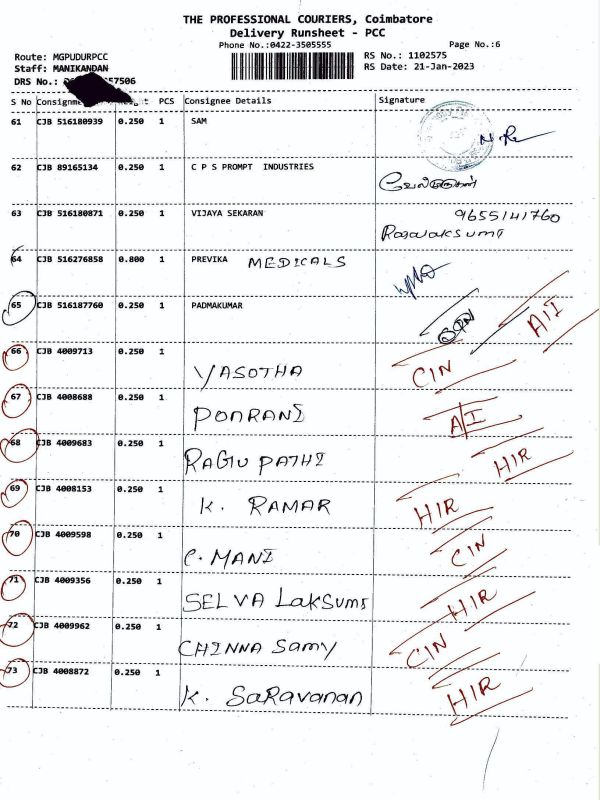 THE PROFESSIONAL COURIERS, Coimbatore
Delivery Runsheet - PCC
Phone No.:0422-3505555 Page No.:6
Route: MGPUDURPCC RS No.: 1102575
Staff: MANIKANDAN RS Date: 21-Jan-2023
DRS No.: 57506
S No PCS Consignee Details Signature
61 CJB 516180939 0.250 1 SAM
62 CJB 89165134 0.250 1 C P S PROMPT INDUSTRIES
63 CJB 516180871 0.250 1 VIJAYA SEKARAN 9655141760
64 CJB 516276858 0.800 1 PREVIKA MEDICALS
65 CJB 516187760 0.250 1 PADMAKUMAR AII
66 CJB 4009713 0.250 1 YASOTHA CIN
67 CJB 4008688 0.250 1 PONRANI AII
68 CJB 4009683 0.250 1 RAGU PATHI HIR
69 CJB 4008153 0.250 1 K. RAMAR HIR
70 CJB 4009598 0.250 1 C. MANI CIN
71 CJB 4009356 0.250 1 SELVA LakSumi HIR
72 CJB 4009962 0.250 1 CHINNA Samy CIN
73 CJB 4008872 0.250 1 K. SaRavanan HIR